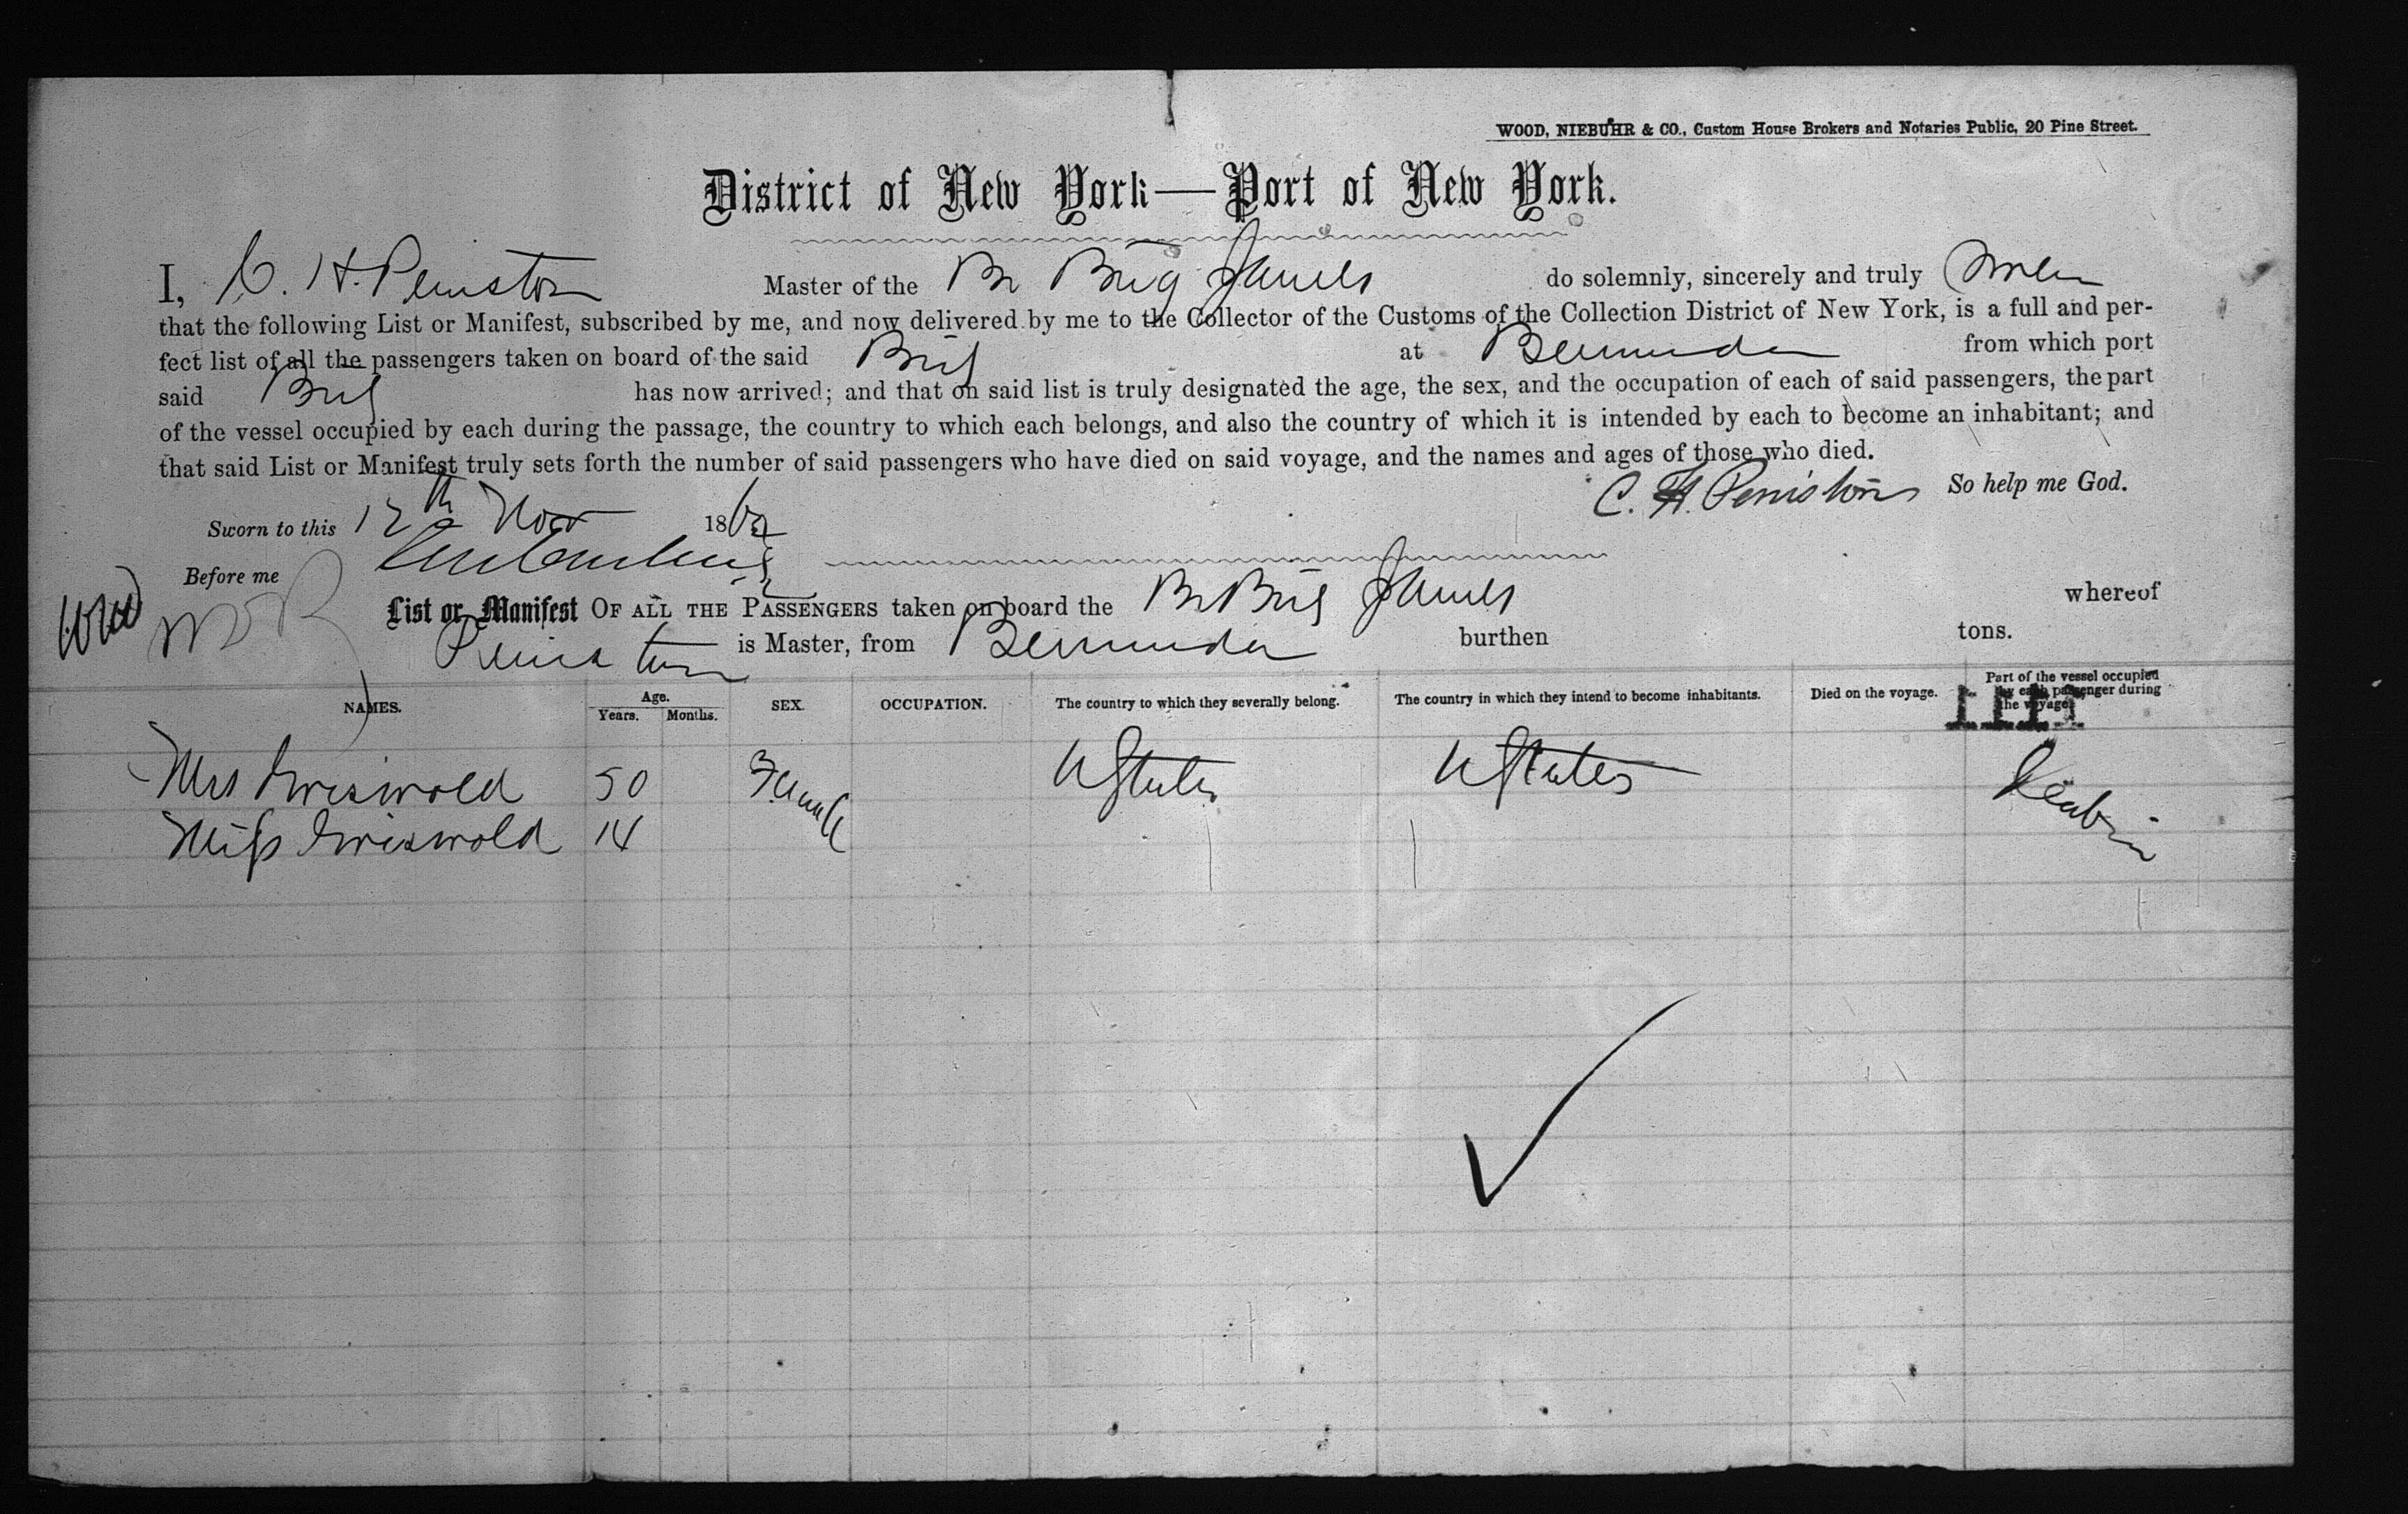 WOOD, NIEBUHR & CO., Custom House Brokers and Notaries Public, 20 Pine Street.
District of New York—Port of New York.
I, C. H. Peniston Master of the Br Brig do solemnly, sincerely and truly
that the following List or Manifest, subscribed by me, and now delivered by me to the Collector of the Customs of the Collection District of New York, is a full and per-
fect list of all the passengers taken on board of the said Brig at Bermuda from which port
said Brig has now arrived; and that on said list is truly designated the age, the sex, and the occupation of each of said passengers, the part
of the vessel occupied by each during the passage, the country to which each belongs, and also the country of which it is intended by each to become an inhabitant; and
that said List or Manifest truly sets forth the number of said passengers who have died on said voyage, and the names and ages of those who died.
C. H. Peniston So help me God.
Sworn to this 12th Nov 186
Before me
List or Manifest OF ALL THE PASSENGERS taken on board the Br Brig whereof
Peniston is Master, from Bermuda burthen tons.
NAMES. Age. Years. Months. SEX. OCCUPATION. The country to which they severally belong. The country in which they intend to become inhabitants. Died on the voyage. Part of the vessel occupied by each passenger during the voyage.
Mrs Griswold 50 Female U States U States Cabin
Miss Griswold 14